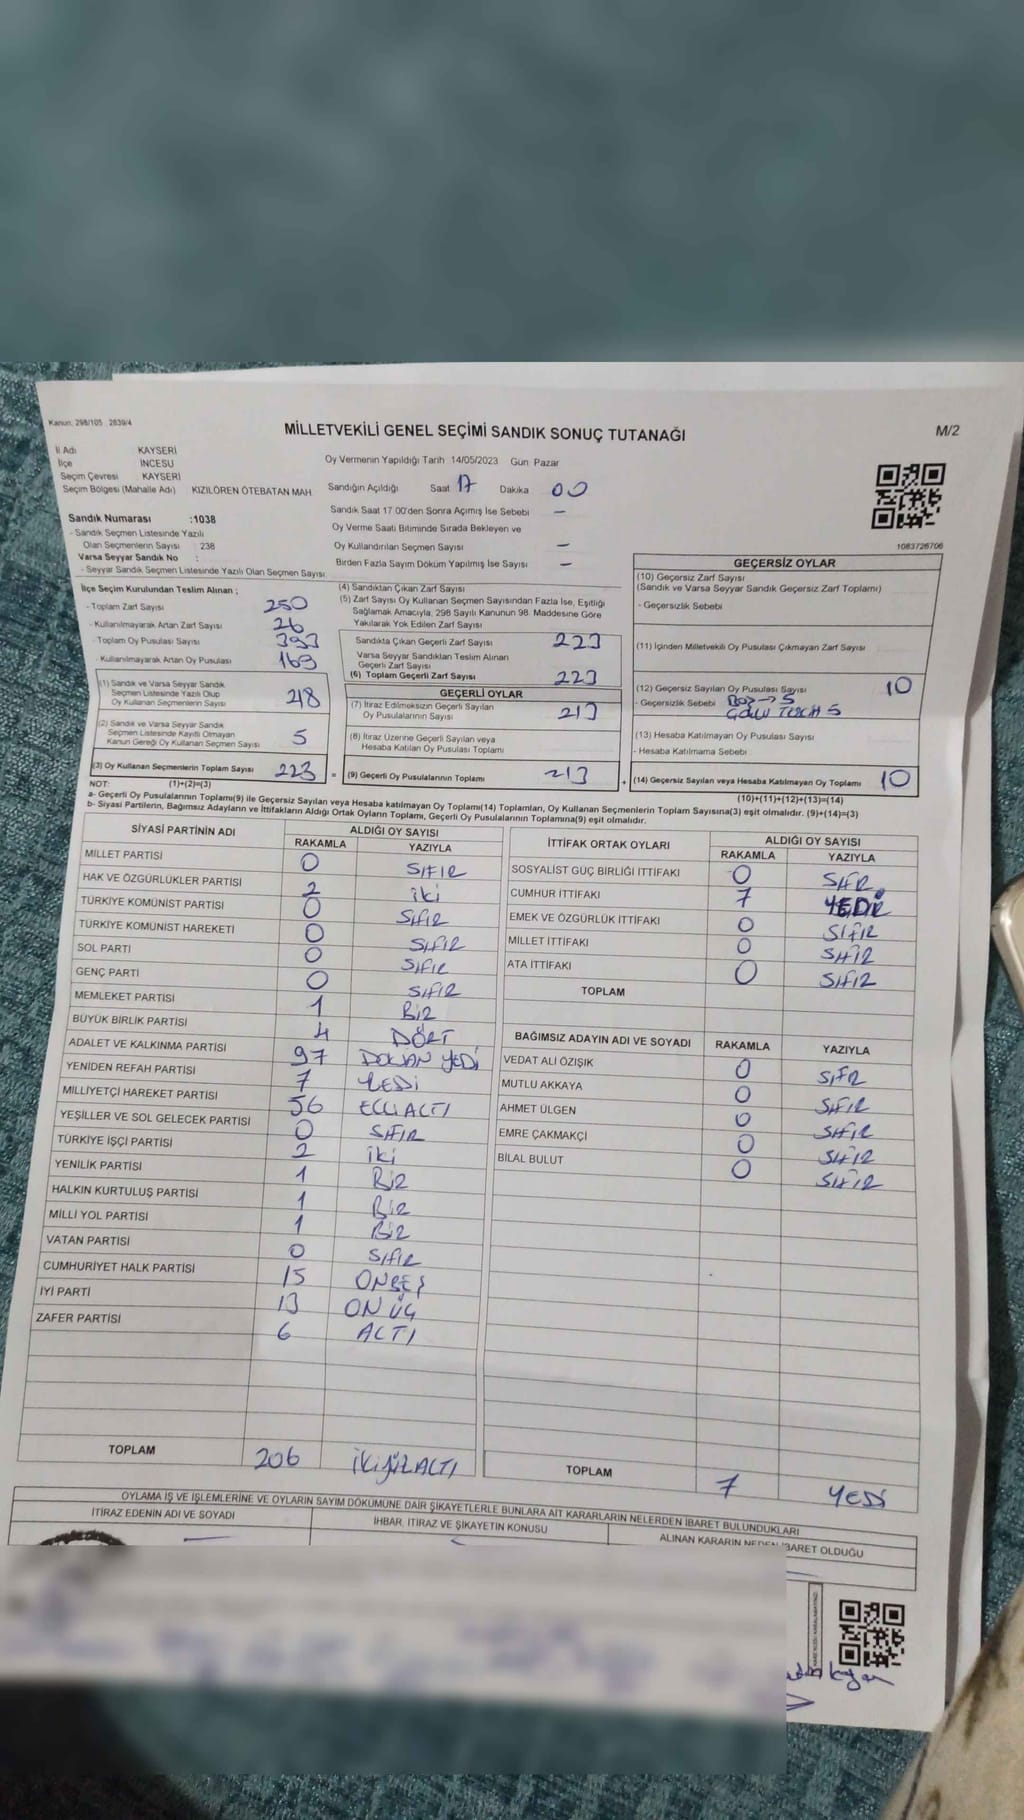 Kanun: 298/105 , 2839/4
MİLLETVEKİLİ GENEL SEÇİMİ SANDIK SONUÇ TUTANAĞI
M/2
İl Adı KAYSERİ
İlçe İNCESU
Seçim Çevresi : KAYSERİ
Seçim Bölgesi (Mahalle Adı) KIZILÖREN ÖTEBATAN MAH
Oy Vermenin Yapıldığı Tarih 14/05/2023 Gün Pazar
Sandığın Açıldığı Saat 17 Dakika 00
Sandık Saat 17 00'den Sonra Açımış İse Sebebi —
Oy Verme Saati Bitiminde Sırada Bekleyen ve
Oy Kullandırılan Seçmen Sayısı —
Birden Fazla Sayım Döküm Yapılmış İse Sayısı —
1083726706
Sandık Numarası :1038
- Sandık Seçmen Listesinde Yazılı
Olan Seçmenlerin Sayısı : 238
Varsa Seyyar Sandık No :
- Seyyar Sandık Seçmen Listesinde Yazılı Olan Seçmen Sayısı
İlçe Seçim Kurulundan Teslim Alınan ;
- Toplam Zarf Sayısı 250
- Kullanılmayarak Artan Zarf Sayısı 26
- Toplam Oy Pusulası Sayısı 393
- Kullanılmayarak Artan Oy Pusulası 169
(1) Sandık ve Varsa Seyyar Sandık
Seçmen Listesinde Yazılı Olup
Oy Kullanan Seçmenlerin Sayısı 218
(2) Sandık ve Varsa Seyyar Sandık
Seçmen Listesinde Kayıtlı Olmayan
Kanun Gereği Oy Kullanan Seçmen Sayısı 5
(3) Oy Kullanan Seçmenlerin Toplam Sayısı 223
(1)+(2)=(3)
(4) Sandıktan Çıkan Zarf Sayısı
(5) Zarf Sayısı Oy Kullanan Seçmen Sayısından Fazla İse, Eşitliği
Sağlamak Amacıyla, 298 Sayılı Kanunun 98. Maddesine Göre
Yakılarak Yok Edilen Zarf Sayısı
Sandıkta Çıkan Geçerli Zarf Sayısı 223
Varsa Seyyar Sandıktan Teslim Alınan
Geçerli Zarf Sayısı
(6) Toplam Geçerli Zarf Sayısı 223
GEÇERLİ OYLAR
(7) İtiraz Edilmeksizin Geçerli Sayılan
Oy Pusulalarının Sayısı 213
(8) İtiraz Üzerine Geçerli Sayılan veya
Hesaba Katılan Oy Pusulası Toplamı
= (9) Geçerli Oy Pusulalarının Toplamı 213
GEÇERSİZ OYLAR
(10) Geçersiz Zarf Sayısı
(Sandık ve Varsa Seyyar Sandık Geçersiz Zarf Toplamı)
- Geçersizlik Sebebi
(11) İçinden Milletvekili Oy Pusulası Çıkmayan Zarf Sayısı
(12) Geçersiz Sayılan Oy Pusulası Sayısı 10
- Geçersizlik Sebebi BOŞ → 5
5
(13) Hesaba Katılmayan Oy Pusulası Sayısı
- Hesaba Katılmama Sebebi
+ (14) Geçersiz Sayılan veya Hesaba Katılmayan Oy Toplamı 10
(10)+(11)+(12)+(13)=(14)
NOT:
a- Geçerli Oy Pusulalarının Toplamı(9) ile Geçersiz Sayılan veya Hesaba katılmayan Oy Toplamı(14) Toplamları, Oy Kullanan Seçmenlerin Toplam Sayısına(3) eşit olmalıdır. (9)+(14)=(3)
b- Siyasi Partilerin, Bağımsız Adayların ve İttifakların Aldığı Ortak Oyların Toplamı, Geçerli Oy Pusulalarının Toplamına(9) eşit olmalıdır.
SİYASİ PARTİNİN ADI ALDIĞI OY SAYISI
RAKAMLA YAZIYLA
MİLLET PARTİSİ 0 SIFIR
HAK VE ÖZGÜRLÜKLER PARTİSİ 2 İKİ
TÜRKİYE KOMÜNİST PARTİSİ 0 SIFIR
TÜRKİYE KOMÜNİST HAREKETİ 0 SIFIR
SOL PARTİ 0 SIFIR
GENÇ PARTİ 0 SIFIR
MEMLEKET PARTİSİ 1 BİR
BÜYÜK BİRLİK PARTİSİ 4 DÖRT
ADALET VE KALKINMA PARTİSİ 97 DOKSAN YEDİ
YENİDEN REFAH PARTİSİ 7 YEDİ
MİLLİYETÇİ HAREKET PARTİSİ 56 ELLİ ALTI
YEŞİLLER VE SOL GELECEK PARTİSİ 0 SIFIR
TÜRKİYE İŞÇİ PARTİSİ 2 İKİ
YENİLİK PARTİSİ 1 BİR
HALKIN KURTULUŞ PARTİSİ 1 BİR
MİLLİ YOL PARTİSİ 1 BİR
VATAN PARTİSİ 0 SIFIR
CUMHURİYET HALK PARTİSİ 15 ONBEŞ
İYİ PARTİ 13 ON ÜÇ
ZAFER PARTİSİ 6 ALTI
TOPLAM 206 İKİYÜZALTI
İTTİFAK ORTAK OYLARI ALDIĞI OY SAYISI
RAKAMLA YAZIYLA
SOSYALİST GÜÇ BİRLİĞİ İTTİFAKI 0 SIFIR
CUMHUR İTTİFAKI 7 YEDİ
EMEK VE ÖZGÜRLÜK İTTİFAKI 0 SIFIR
MİLLET İTTİFAKI 0 SIFIR
ATA İTTİFAKI 0 SIFIR
TOPLAM
BAĞIMSIZ ADAYIN ADI VE SOYADI RAKAMLA YAZIYLA
VEDAT ALİ ÖZIŞIK 0 SIFIR
MUTLU AKKAYA 0 SIFIR
AHMET ÜLGEN 0 SIFIR
EMRE ÇAKMAKÇİ 0 SIFIR
BİLAL BULUT 0 SIFIR
TOPLAM 7 YEDİ
OYLAMA İŞ VE İŞLEMLERİNE VE OYLARIN SAYIM DÖKÜMÜNE DAİR ŞİKAYETLERLE BUNLARA AİT KARARLARIN NELERDEN İBARET BULUNDUKLARI
İTİRAZ EDENİN ADI VE SOYADI
İHBAR, İTİRAZ VE ŞİKAYETİN KONUSU
ALINAN KARARIN NEDEN İBARET OLDUĞU